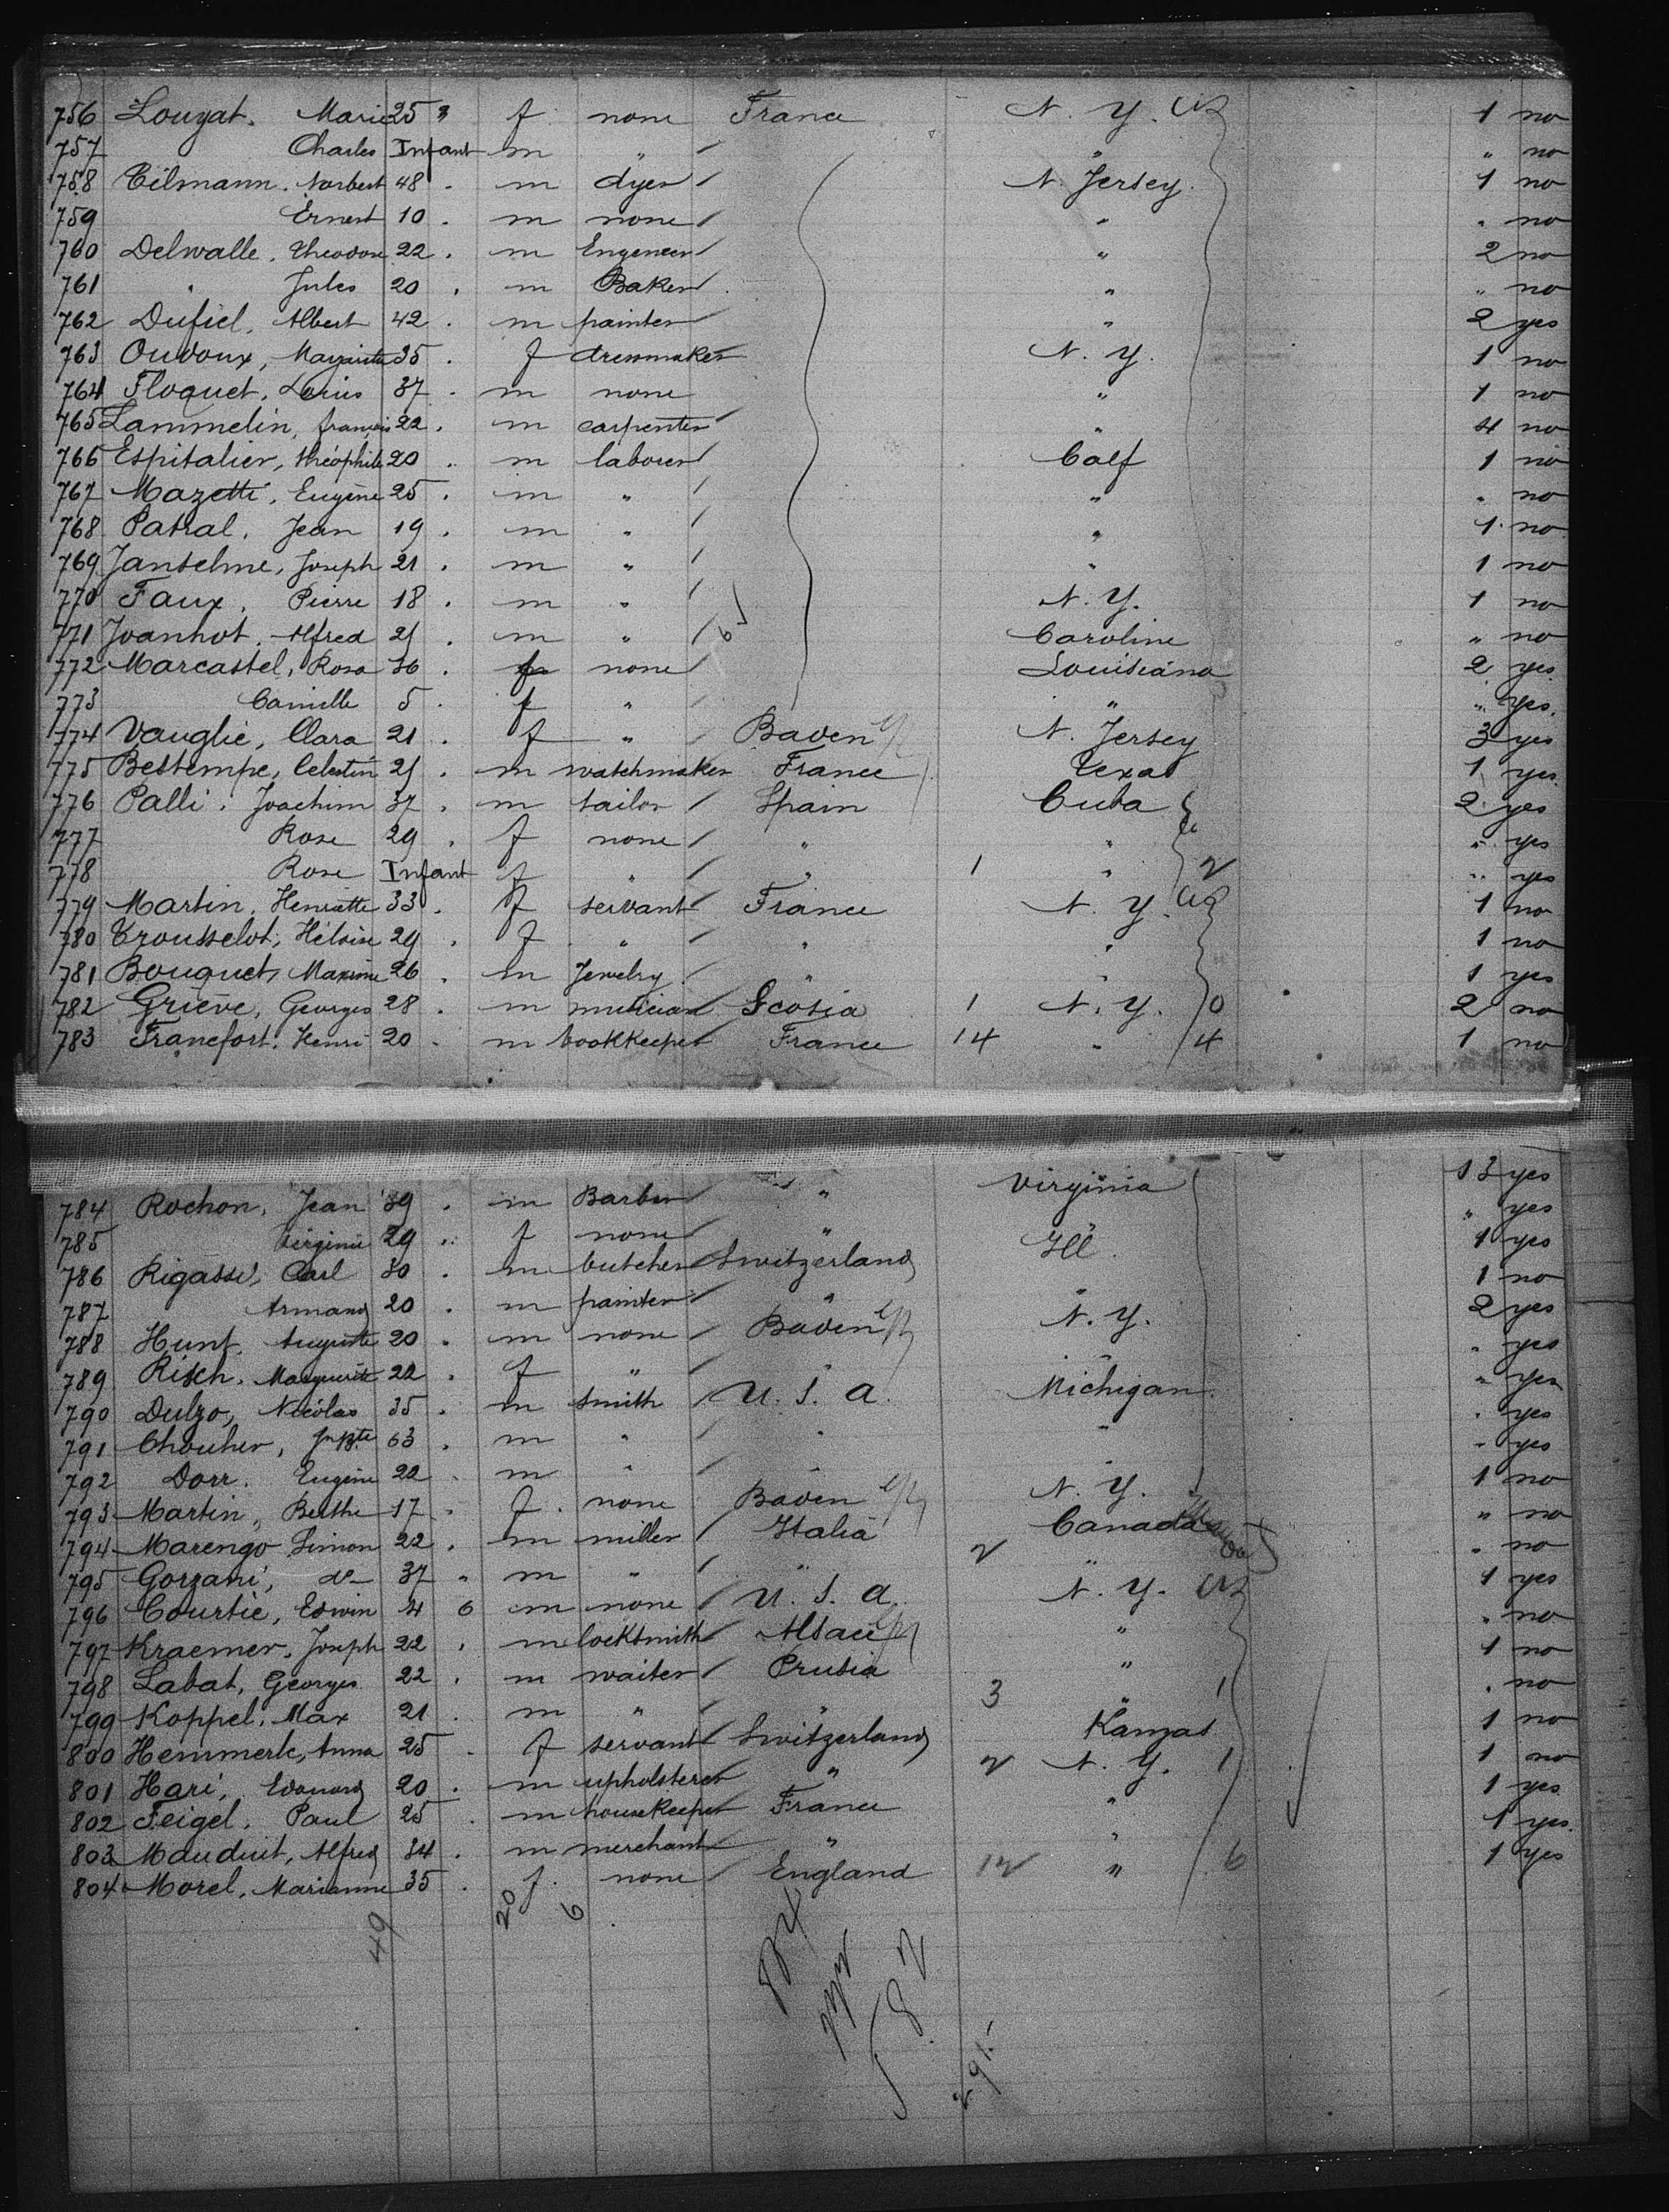 756 Louyat. Marie 25 " f none France N. Y. 1 no
757 Charles Infant m " " " no
758 Tilmann. Norbert 48 . m dyer N. Jersey. 1 no
759 Ernest 10 . m none " " no
760 Delwalle. Theodore 22 . m Engeneer " 2 no
761 " Jules 20 . m Baker " " no
762 Dufiel, Albert 42 . m painter " 2 yes
763 Oudoux, 35 . f dressmaker N. Y. 1 no
764 Floquet, 37 . m none " 1 no
765 Lammelin, 22 . m carpenter " 4 no
766 Espitalier, théophile 20 .. m laborer Calf 1 no
767 Mazetti, Eugène 25 . m " " " no
768 Patral. Jean 19 . m " " 1 no
769 Janselme, Joseph 21 . m " " 1 no
770 Faux. Pierre 18 . m " N. Y. 1 no
771 Joanhot, Alfred m " Caroline " no
772 Marcastel, Rosa 36 . f none Louisiana 2 yes.
773 Camille 5 . f " " " yes.
774 Vauglié, Clara 21 . f " Baden N. Jersey 3 yes
775 Bestempe, Celestin m watchmaker France Texas 1 yes
776 Palli. Joachim 37 . m tailor Spain Cuba 2 yes
777 Rose 29 . f none " " " yes
778 Rose Infant f " " 1 " 2 " yes
779 Martin. Henriette 33 . f servant France N. Y. 1 no
780 Trousselot, Héloise 29 . f " " " 1 no
781 Bouquet, Maxime 26 . m Jewelry " " 1 yes
782 Griève, Georges 28 . m musician Scotia 1 N. Y. 0 2 no
783 Francfort. Henri 20 . m bookkeeper France 14 " 4 1 no
784 Rochon, Jean 39 . m Barber " Virginia 13 yes
785 Virginie 29 .. f none " " yes
786 Rigassi, Carl 30 . m butcher Switzerland Ill. 1 yes
787 Armand 20 . m painter " " 1 no
788 Hunt. Auguste 20 . m none Baden N. Y. 2 yes
789 Risch. Marguerite 22 . f " " yes
790 Dulzo, Nicolas 35 . m smith U. S. A. Michigan. " yes
791 Chouher, 63 . m " " " " yes
792 Dorr. Eugène 22 . m " " " " yes
793 Martin, Berthe 17 . f. none Baden N. Y. 1 no
794 Marengo Simon 22 . m miller Italia Canada " no
795 Gorzani, do 37 " m " " 2 " " no
796 Courtié, Edwin 4 6 m none U. S. A. N. Y. 1 yes
797 Kraemer. Joseph 22 . m locksmith Alsace " " no
798 Labat, Georges 22 . m waiter Prusia " 1 no
799 Koppel. Max 21 . m " " 3 " 1 " no
800 Hemmerle, Anna 25 . f servant Switzerland Kanzas 1 no
801 Hari, Edouard 20 . m upholsterer " 2 N. Y. 1 1 no
802 Feigel. Paul 25 . m housekeeper France " 1 yes
803 Mauduit, Alfred 34 . m merchant " " 1 yes.
804 Morel, Marianne 35 . f. none England 12 " 6 1 yes
49 20 6
291.-